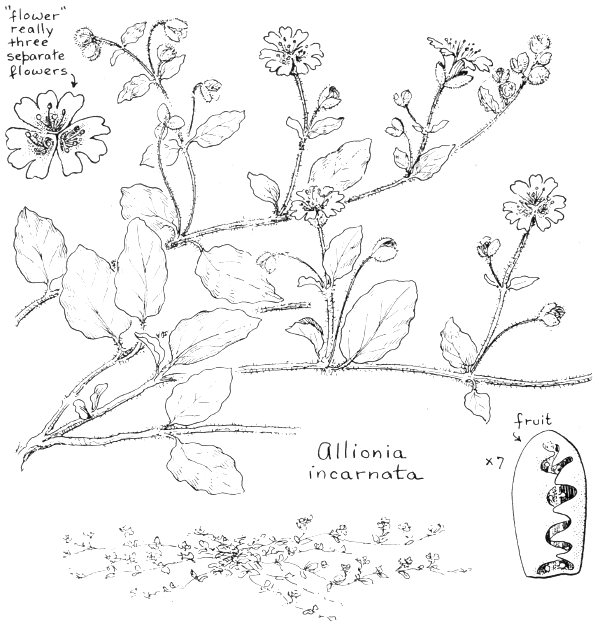 "flower"
really
three
separate
flowers
Allionia
incarnata
fruit
x7